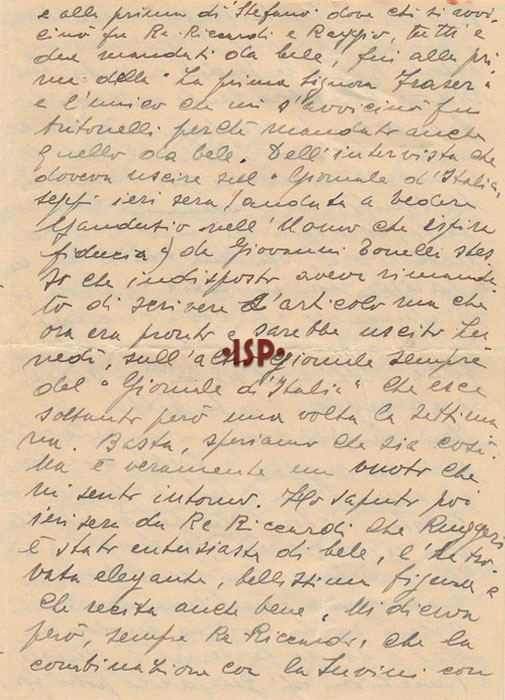 e alla prima di Stefano dove chi si avvi
cinò fu Re Riccardi e Raggio, tutti e
due mandati da bele, fui alla pri
ma della "La prima Signora Fraser"
e l'unico che mi s'avvicinò fu
Antonelli perché mandato anche
quello da bele. Dell'intervista che
doveva uscire sul "Giornale d'Italia,
seppi ieri sera (andata a vedere
Gandusio nell'"Uomo che ispira
fiducia") da Giovanni Bonelli stes
so che indisposto aveva rimanda
to di scrivere l'articolo ma che
ora era pronto e sarebbe uscito Lu
nedì, sull'altro giornale sempre
del "Giornale d'Italia" che esce
soltanto però una volta la settima
na. Basta, speriamo che sia così.
Ma è veramente un vuoto che
mi sento intorno. Ho saputo poi
ieri sera da Re Riccardi che Ruggeri
è stato entusiasta di bele, l'ha tro
vata elegante, bellissima figura e
che recita anche bene. Mi diceva
però, sempre Re Riccardi, che la
combinazione con la Suvini con
•ISP•